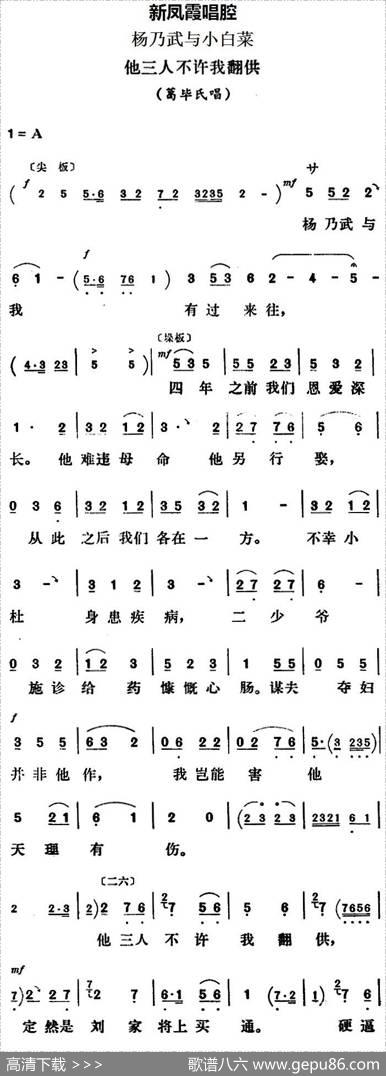 新凤霞唱腔
杨乃武与小白菜
他三人不许我翻供
(葛毕氏唱)
1=A
〔尖板〕 サ
f mf
( 2 5 5·6 3 2 7 2 3235 2 - ) 5 5 2 2
杨 乃 武 与
f
6 1 - ( 5·6 7 6 1 ) 3 5 3 6 2 - 4 - 5 -
我 有 过 来 往,
〔垛板〕
mf
( 4·3 2 3 | 5 5 ) | 5 3 5 | 5 5 2 3 | 5 3 2 |
四 年 之前我们 恩 爱 深
1 · 2 | 3 2 1 2 | 3 · | 2 7 2 7 6 | 5 6 |
长。 他 难违 母 命 他 另 行 娶,
0 3 6 | 3 2 1 2 | 3 5 3 2 | 1 - | 3 2 1 2 |
从 此 之后我们 各在一 方。 不幸小
3 - | 3 1 2 | 3 - | 2 7 2 7 | 6 - |
杜 身患疾 病, 二 少 爷
0 3 2 | 1 2 3 | 5 2 3 | 1 5 5 | 0 5 5 |
施 诊 给 药 慷慨心 肠。谋夫 夺妇
f
3 5 5 | 6 3 2 | 0 6 2 2 | 0 2 7 6 | 5·( 3 2 3 5 ) |
并 非 他 作, 我 岂能 害 他
5 2 1 | 6 1 | 2 0 | ( 2 3 2 3 | 2321 6 1 |
天 理 有 伤。
〔二六〕
2 2·3 | 2 ) 2 7 6 | 7 5 6 | 6 | 7 ( 7656 |
他 三人 不 许 我 翻 供,
mf
7 ) 2 2 7 | 2 7 | 5 6 | 1 ( 7·2 | 1 ) 7 6 |
定 然是 刘 家 将上 买 通。 硬逼
高清下载 >>> 歌谱八六 www.gepu86.com